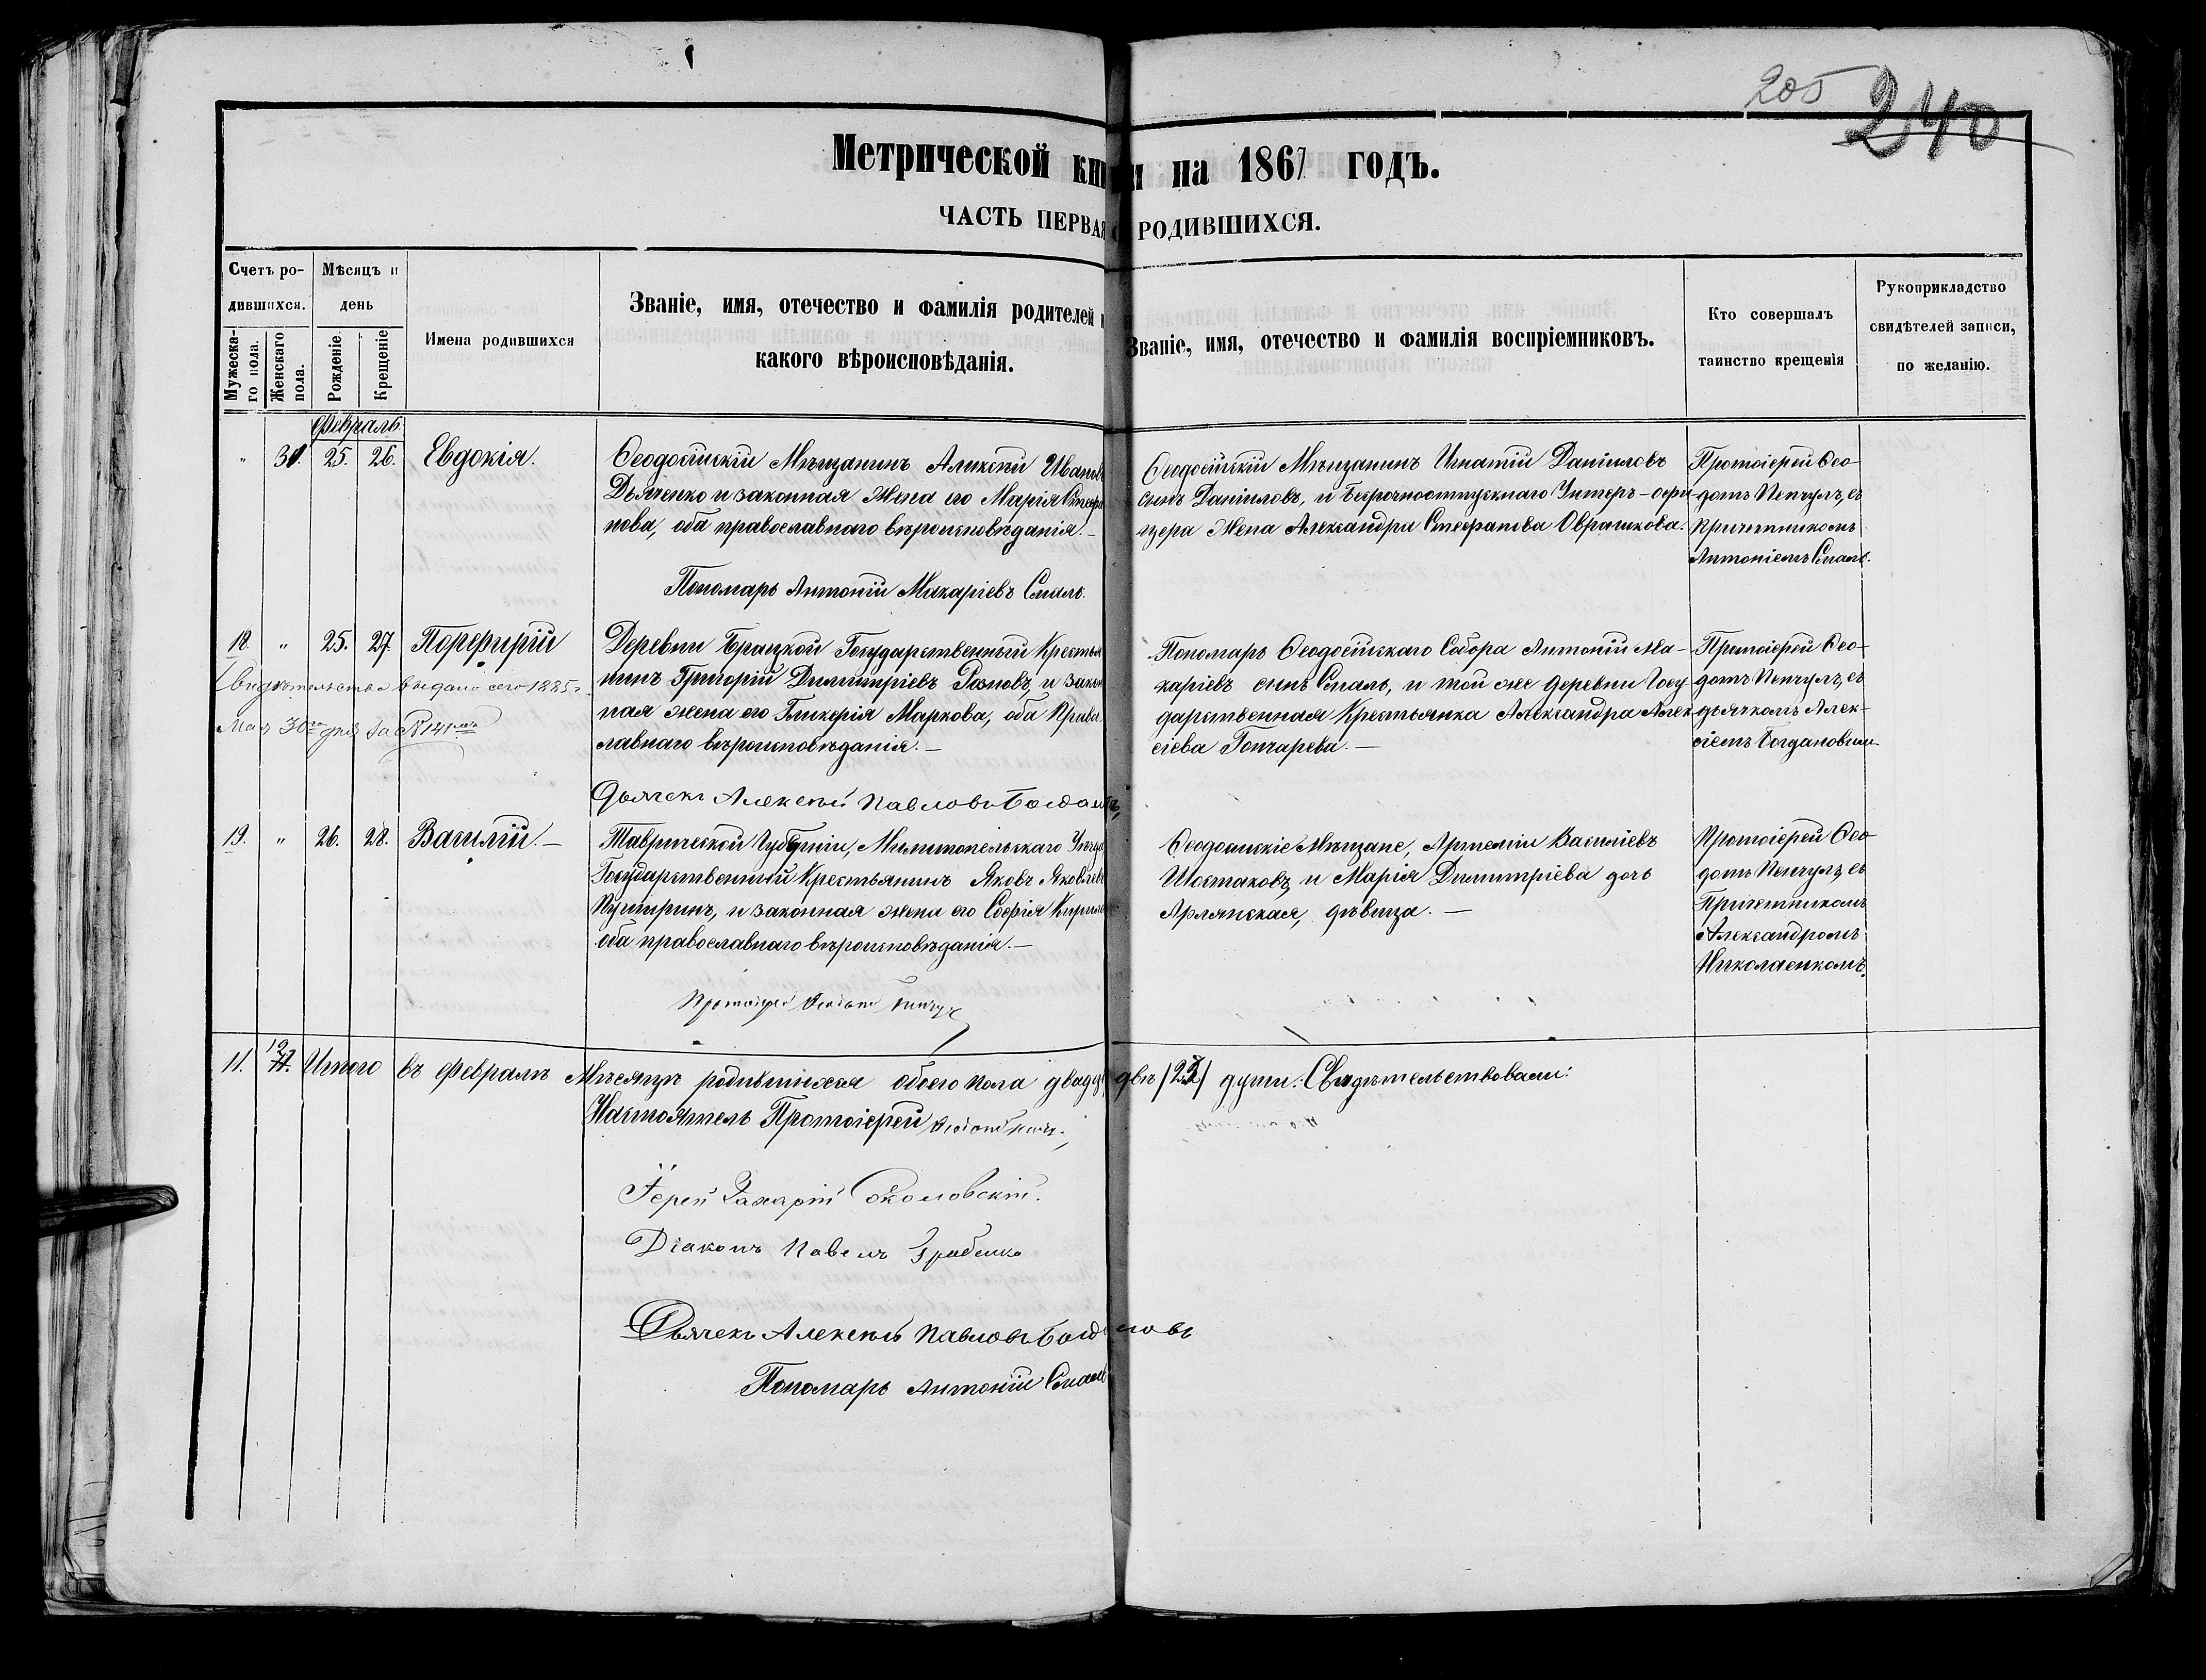 205 240
Метрической кни и на 1867 годъ.
ЧАСТЬ ПЕРВАЯ РОДИВШИХСЯ.
Счетъ ро-
дившихся.
Мужеска-
го пола.
Женскаго
пола.
Мѣсяцъ и
день
Рожденіе.
Крещеніе
Имена родившихся
Званіе, имя, отечество и фамилія родителей и
какого вѣроисповѣданія.
Званіе, имя, отечество и фамилія воспріемниковъ.
Кто совершалъ
таинство крещенія
Рукоприкладство
свидѣтелей записи,
по желанію.
Февраль
" 31. 25. 26. Евдокія.
Ѳеодосійскій Мѣщанинъ Алексѣй Иванов
Дьяченко и законная Жена его Марія Стефа
нова, оба православнаго вѣроисповѣданія.—
Пономарь Антоній Макаріевъ Смаль.
Ѳеодосійскій Мѣщанинъ Игнатій Даніиловъ
сынъ Даніиловъ, и безсрочноотпускнаго Унтеръ-офи-
цера Жена Александра Стефанова Оврашкова.
Протоіерей Ѳео-
дотъ Пенчулъ, съ
Причетникомъ
Антоніемъ Смаль.
18. " 25. 27. Порфирій
Свидѣтельство выдано сего 1885 г.
Мая 30го дня за №141мъ
Деревни Брацкой Государственный Крестья
нинъ Григорій Димитріевъ Розновъ, и закон
ная жена его Гликерія Маркова, оба Право
славнаго вѣроисповѣданія.—
Дьячекъ Алексѣй Павловъ Богдановъ
Пономарь Ѳеодосійскаго Собора Антоній Ма-
каріевъ сынъ Смаль, и той же деревни Госу
дарственная Крестьянка Александра Алек-
сіева Гончарева.—
Протоіерей Ѳео-
дотъ Пенчулъ, съ
дьячкомъ Алек-
сіемъ Богдановым
19. " 26. 28. Василій.—
Таврической Губерніи, Мелитопельскаго Уѣзда
Государственный Крестьянинъ Яковъ Яковлев
и законная жена его Софія Кирил
оба православнаго вѣроисповѣданія.—
Протоіерей Ѳеодотъ Пенчул
Ѳеодосійскіе Мѣщане, Артемій Василіевъ
Шостаковъ, и Марія Димитріева дочь
Арлянская, дѣвица.—
Протоіерей Ѳео-
дотъ Пенчулъ, съ
Причетникомъ
Александромъ
Николаенкомъ.
11. 12 Итого въ Февралѣ Мѣсяцѣ родившихся обоего пола двадц двѣ /23/ души. Свидѣтельствовали:
Настоятель Протоіерей Ѳеодотъ Пенч
Іерей Захарій Соколовскій.
Діаконъ Павелъ Грабенко
Дьячекъ Алексѣй Павловъ Богд новъ
Пономарь Антоній Смаль